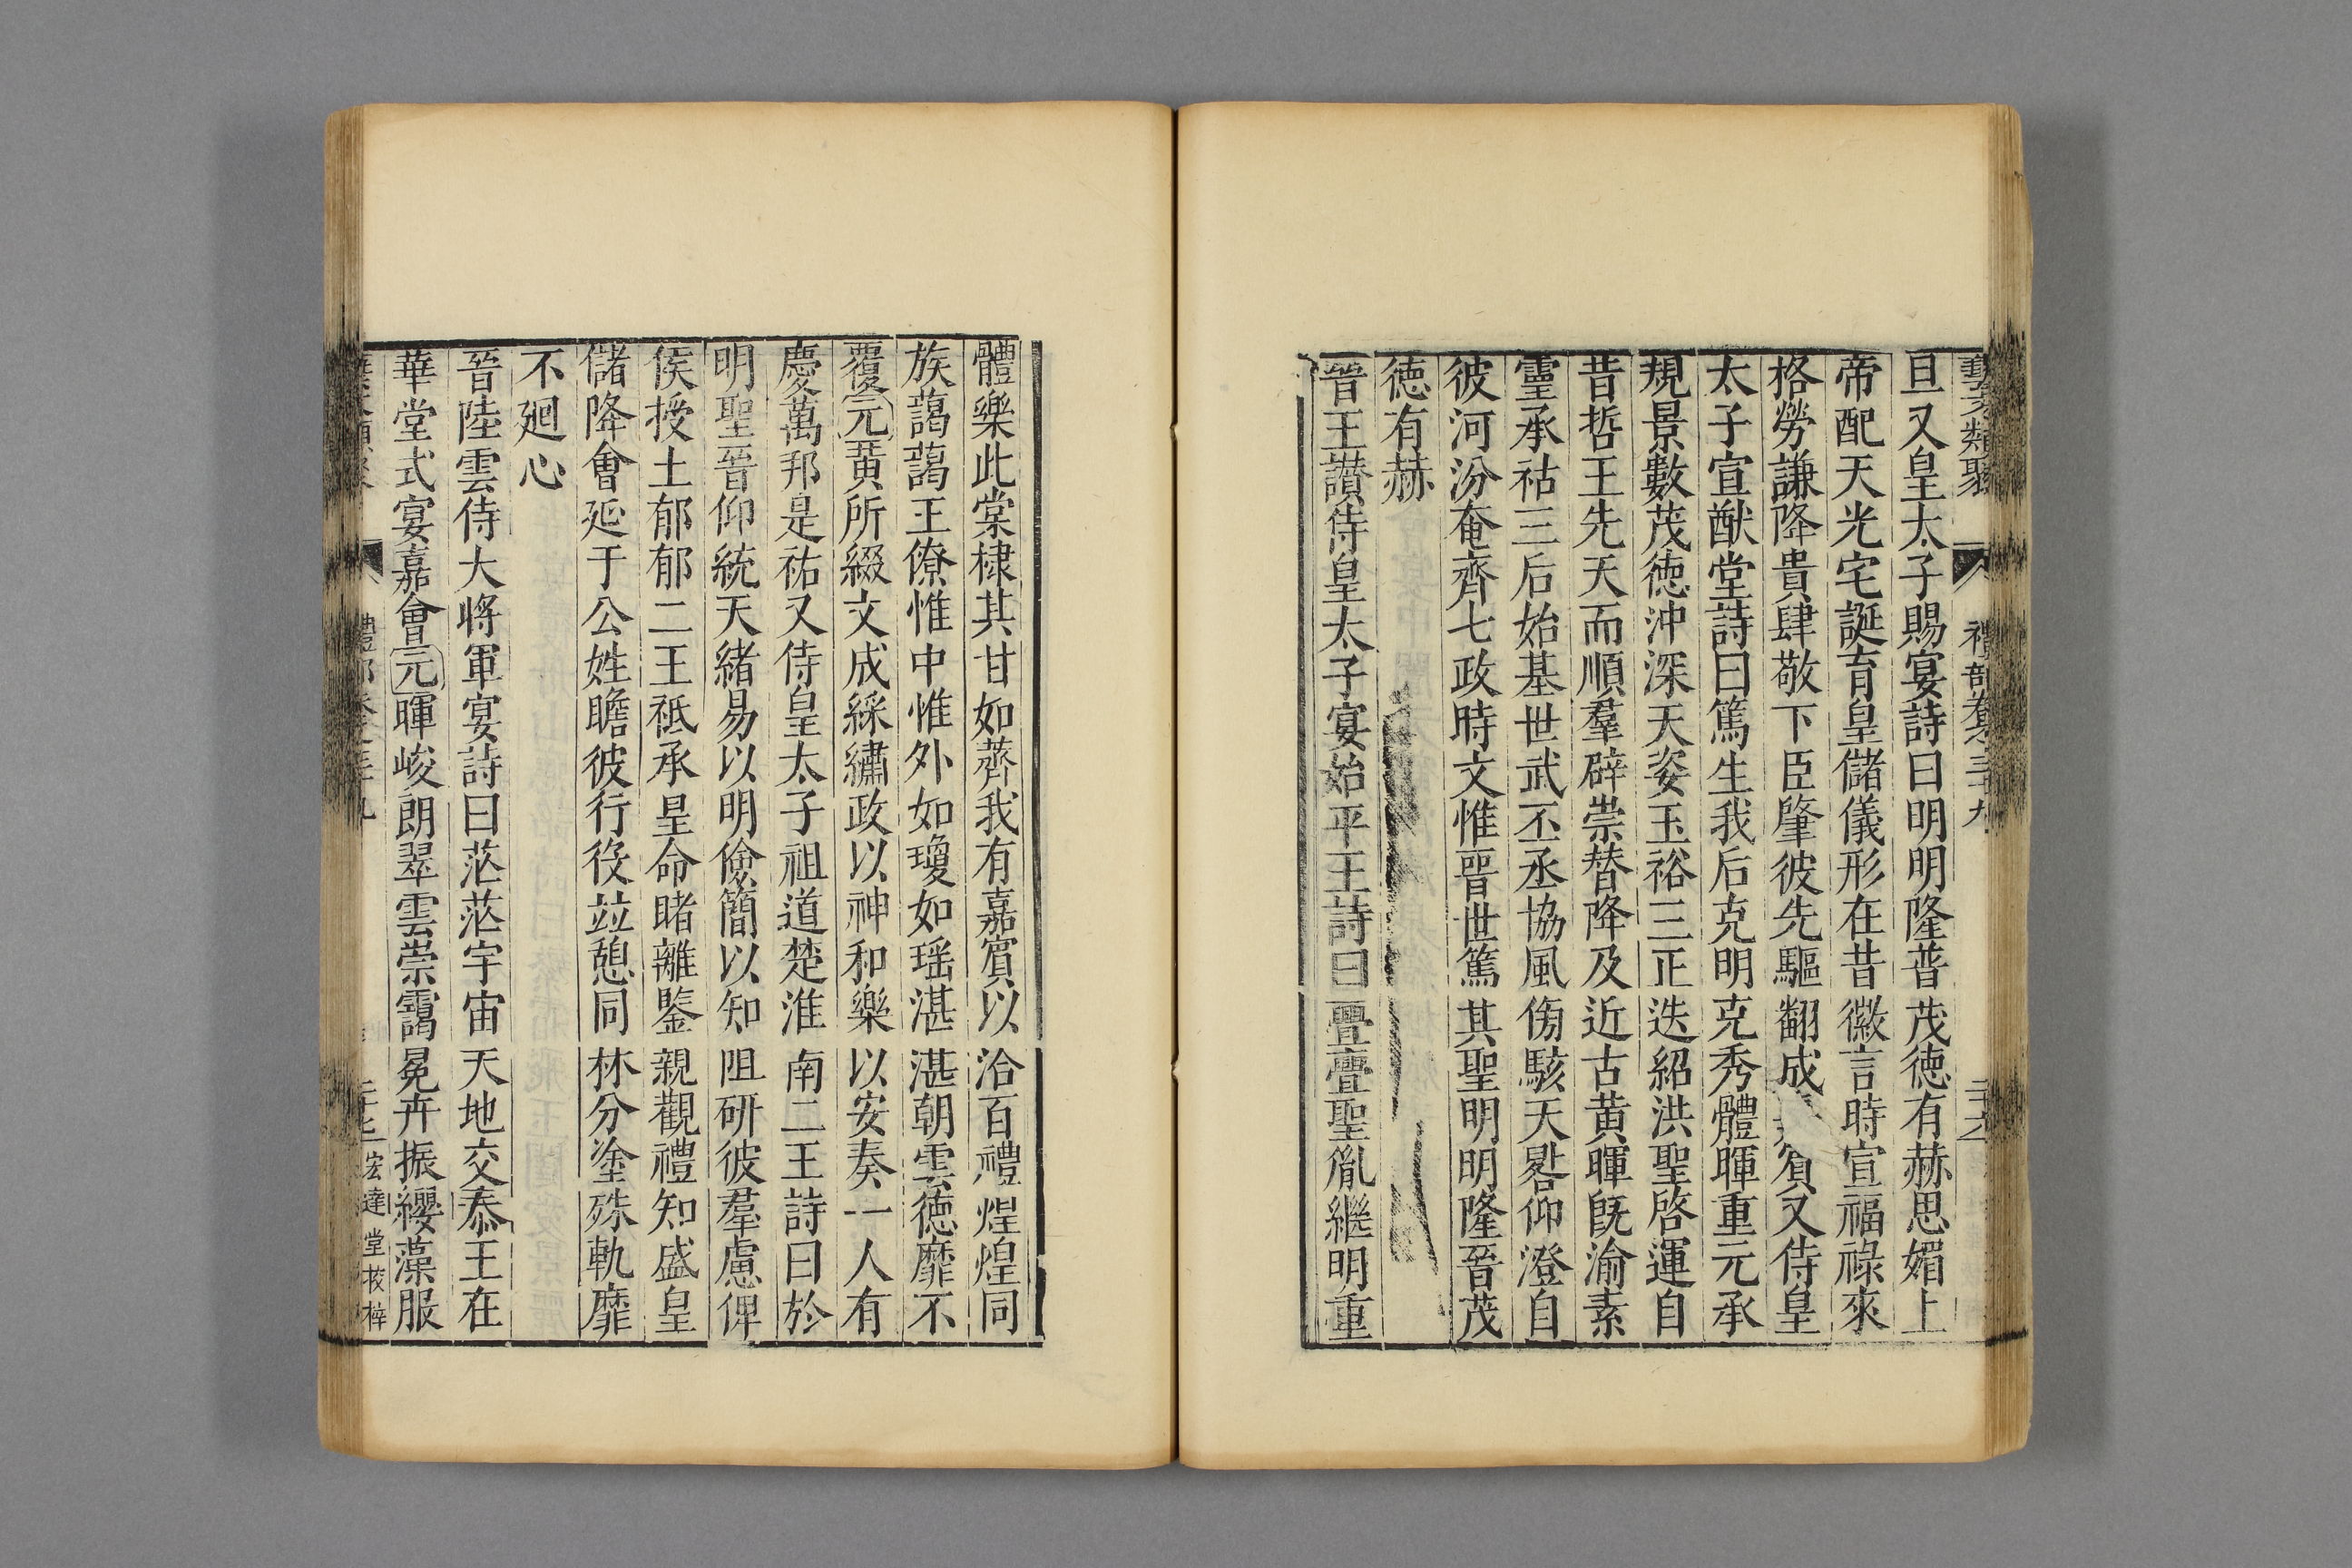 藝文類聚 禮部卷三十九
旦又皇太子賜宴詩曰明明隆普茂德有赫思媚上
帝配天光宅誕育皇儲儀形在昔徽言時宣福祿來
格勞謙降貴肆敬下臣肇彼先驅翻成賓又侍皇
太子宣猷堂詩曰篤生我后克明克秀體暉重元承
規景數茂德沖深天姿玉裕三正迭紹洪聖啓運自
昔哲王先天而順羣辟崇替降及近古黄暉旣渝素
靈承祜三后始基世武丕丞協風傍駭天晷仰澄自
彼河汾奄齊七政時文惟晋世篤其聖明明隆晉茂
德有赫
晉王讚侍皇太子宴始平王詩曰亹亹聖胤繼明重
體樂此棠棣其甘如薺我有嘉賓以洽百禮煌煌同
族藹藹王僚惟中惟外如瓊如瑶湛湛朝雲德靡不
覆元黃所綴文成綵繡政以神和樂以安奏一人有
慶萬邦是祐又侍皇太子祖道楚淮南二王詩曰於
明聖晉仰統天緒易以明儉簡以知阻研彼羣慮俾
侯授土郁郁二王祗承皇命睹離鑒親觀禮知盛皇
儲降會延于公姓瞻彼行役竝憩同林分塗殊軌靡
不廻心
晉陸雲侍大將軍宴詩曰茫茫宇宙天地交泰王在
華堂式宴嘉會元暉峻朗翠雲崇靄冕弁振纓藻服
二十七 宏達堂校梓